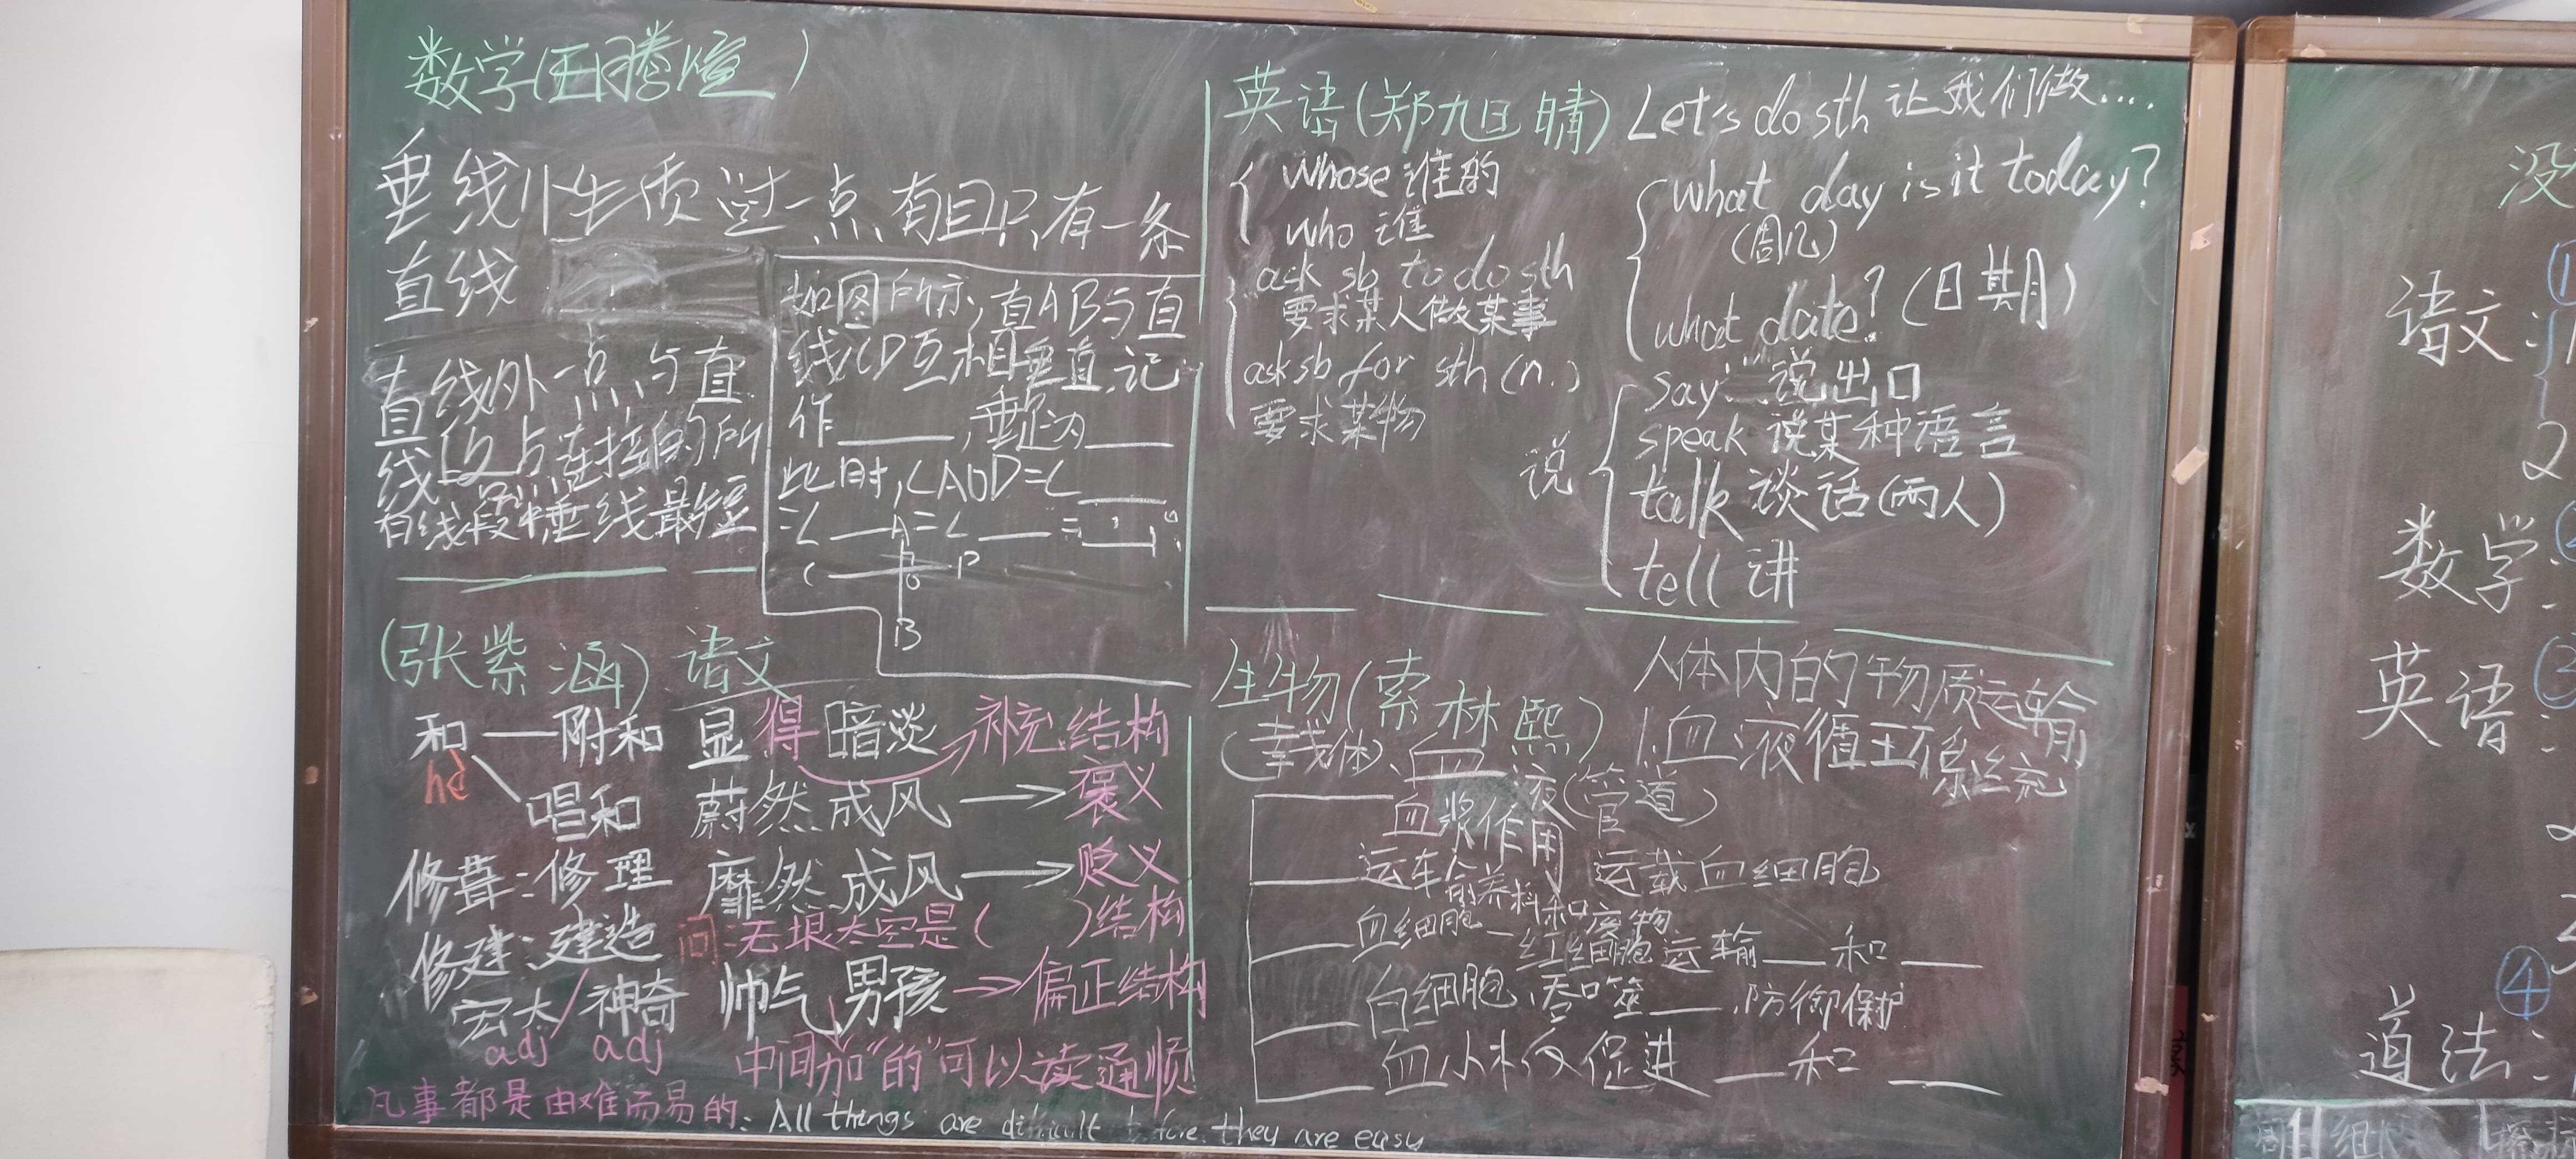 数学(王腾煊)
垂线性质 过一点有且只有一条
直线
直线外一点与直
线上各点连接的所
有线段中垂线最短
如图所示,直AB与直
线CD互相垂直,记
作____,垂足为____
此时,∠AOD=∠____
=∠____=∠____=
A
C O D
B
英语(郑旭晴)
whose 谁的
who 谁
ask sb to do sth
要求某人做某事
ask sb for sth (n.)
要求某物
Let's do sth 让我们做....
what day is it today?
(周几)
what date? (日期)
说
say: 说出口
speak 说某种语言
talk 谈话(两人)
tell 讲
(张紫涵) 语文
和——附和
hè
唱和
修葺:修理
修建:建造
宏大/神奇
adj adj
显得暗淡→补充结构
蔚然成风→褒义
靡然成风→贬义
问:无垠太空是( )结构
帅气男孩→偏正结构
中间加“的”可以读通顺
生物(索林熙)
人体内的物质运输
1.血液循环系统
(载体)、血液(管道)
血浆作用
运输养料和废物 运载血细胞
血细胞—红细胞运输____和____
白细胞、吞噬____,防御保护
血小板促进____和____
凡事都是由难而易的: All things are difficult before they are easy
没
①
语文:
2
数学:
英语:
③
④
道法: